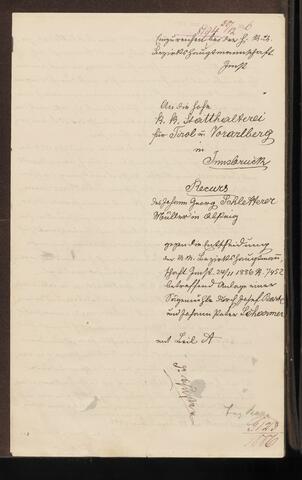 Einzureichen bei der h. k. k.
Bezirkshauptmannschaft
Imst
An die hohe
K. K. Statthalterei
für Tirol u Vorarlberg
in
Innsbruck
Recurs
des Johann Georg Schletterer
Müller in
gegen die Entscheidung
der k. k. Bezirkshauptmann
schaft Imst 24/11 1886 N. 7452
betreffend Anlage einer
Sägemühle durch Josef
und Johann Peter
mit Beil A
9123
1886